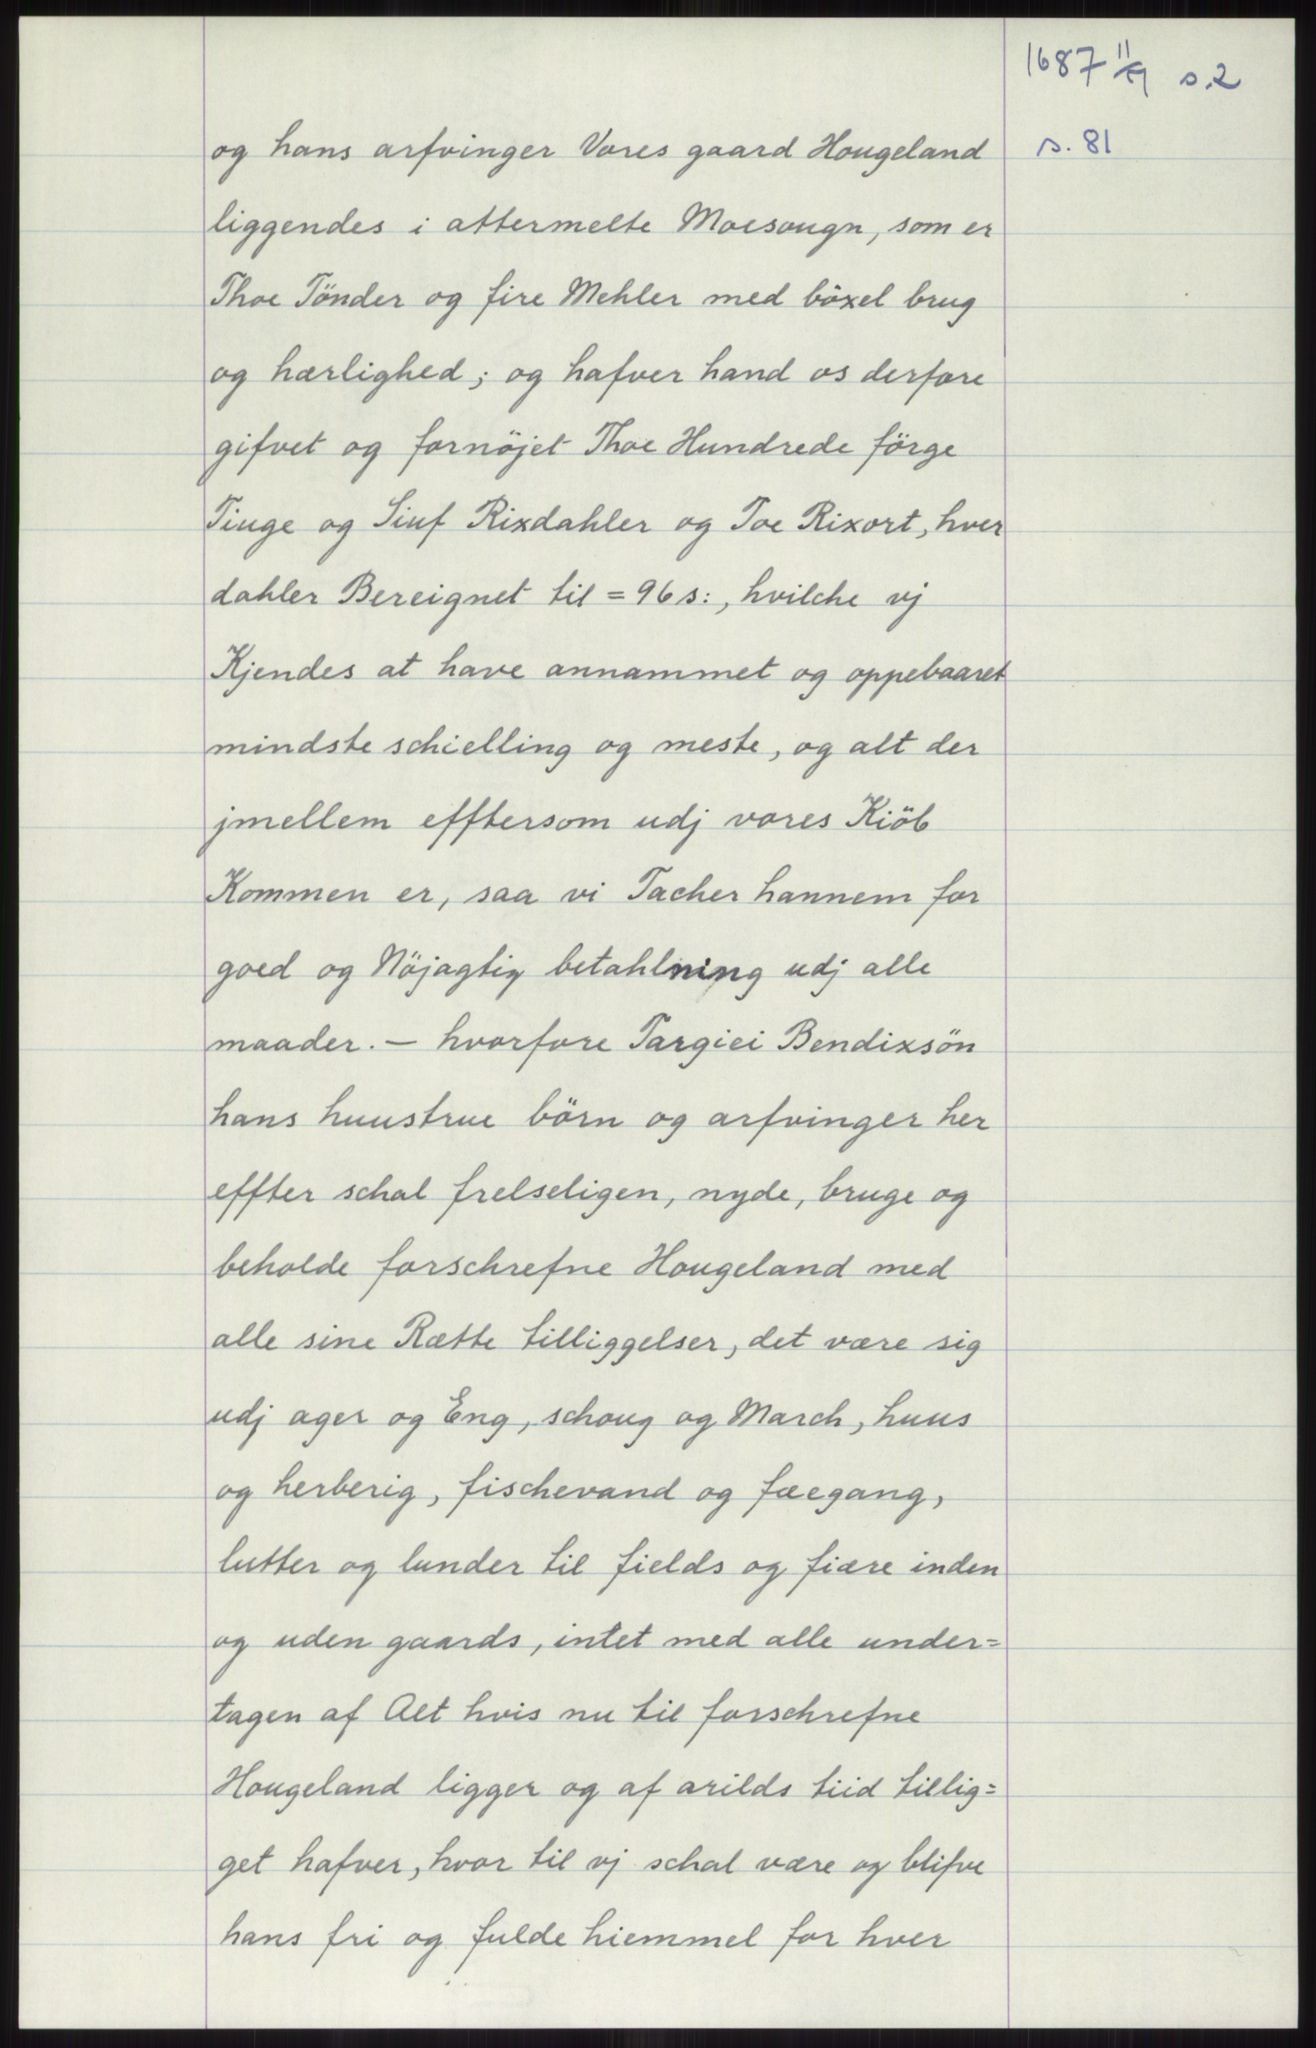 1687 11/9 s.2
s. 81
og hans arfvinger Vores gaard Hougeland
liggendes i attermelte Moesougn, som er
Thoe Tönder og fire Mehler med böxel brug
og hærlighed; og hafver hand os derfore
gifvet og fornöjet Thoe Hundrede förge
Tiuge og Siuf Rixdahler og Toe Rixort, hver
dahler Bereignet til = 96 s:, hvilche vj
Kjendes at have annammet og oppebaaret
mindste schielling og meste, og alt der
jmellem efftersom udj vores Kiöb
Kommen er, saa vi Tacher hannem for
goed og Nöjagtig betahlning udj alle
maader. — hvorfore Targiei Bendixsön
hans huustrue börn og arfvinger her
effter schal frelseligen, nyde, bruge og
beholde forschrefne Hougeland med
alle sine Rætte tilliggelser, det være sig
udj ager og Eng, schoug og March, huus
og herberig, fischevand og fæegang,
lutter og lunder til fields og fiære inden
og uden gaards, intet med alle under=
tagen af Alt hvis nu til forschrefne
Hougeland ligger og af arilds tiid tillig=
get hafver, hvor til vj schal være og blifve
hans fri og fulde hiemmel for hver